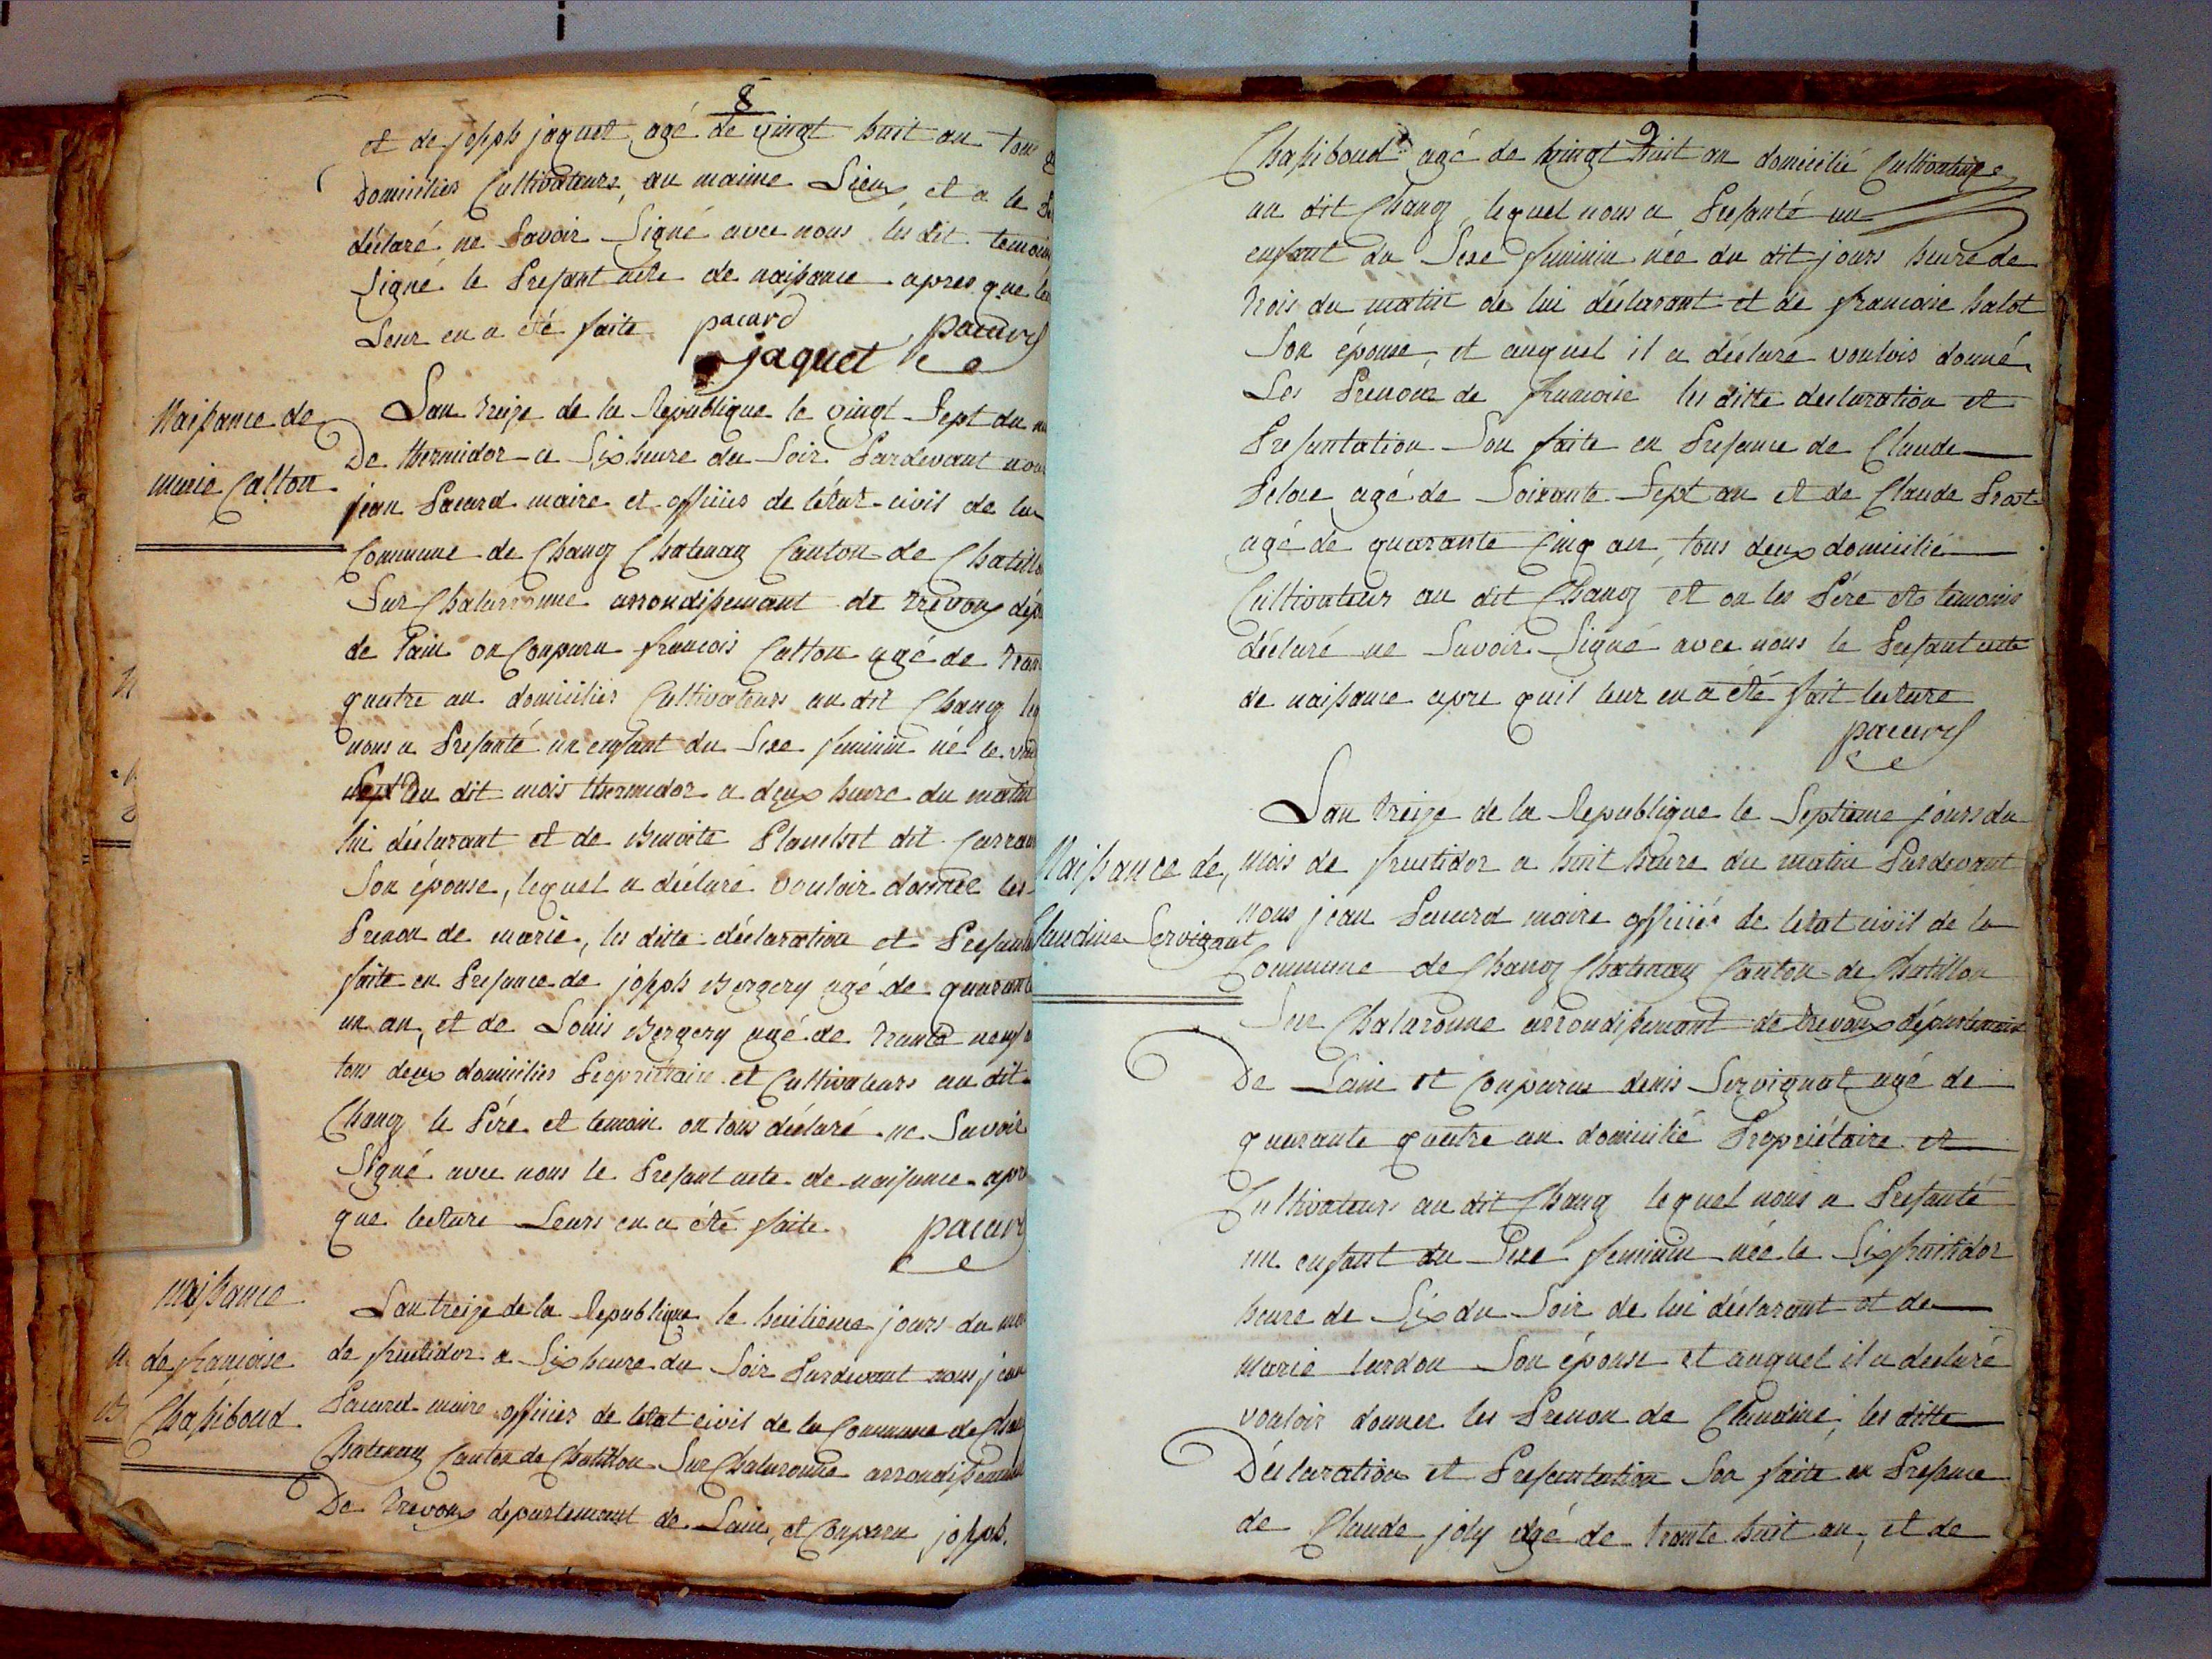 8
et de joseph jaquet agé de vingt huit an tous
Domicilies Cultivateurs au maime Lieux et a le
déclaré ne Savoir Signé avec nous les dit temoin
Signé le Presant acte de naissance apres que
Leur en a été faite pacard pacard
jaquet
Naissance de
marie Catton
Lan treize de la Republique le vingt Sept du
De thermidor a Six heure du Soir Pardevant nous
jean Pacard maire et officies de létat civil de la
Commune de Chanoz Chatenay Canton de Chatillon
Sur Chalaronne arrondissemant de trevoux dép
de Lain on Conparu francois Catton agé de tran
quatre an domicilies Cultivateurs au dit Chanoz leq
nous a Presanté un enfant du Sexe feminin né le vin
Sept du dit mois thermidor a deux heure du matin
lui déclarant et de Benoite Planchet dit Carran
Son épouse, lequel a déclaré vouloir donner les
Prenon de marie, les ditte déclaration et Presant
faite en Presance de joseph Bergery agé de quarante
un an, et de Louis Bergery agé de trante neuf
tous deux domicilies Propriétaire et Cultivateurs au dit
Chanoz le Pére et temoin on tous déclaré ne Savoir
Signé avec nous le Presant acte de naissance apré
que lecture Leurs en a été faite. pacard
naissance
de francoise
Chassiboud
Lan treize de la Republique le huitieme jours du moi
de fructidor a Six heure du Soir Pardevant nous jean
Pacard maire officier de letat civil de la Commune de Chanoz
Chatenay Canton de Chatillon Sur Chalaronne arrondissemant
De trevoux departemant de Lain, et Conparu joseph.
9
Chassiboud agé de vingt huit an domicilié Cultivateur
au dit Chanoz, lequel nous a Presanté un
enfant du Sexe feminin née du dit jours heure de
trois du matin de lui déclarant et de francoise halot
Son épouse, et auquel il a déclaré voulois donné
Les Prenom de francoise les ditte declaration et
Presantation Son faite en Presance de Claude
Pelore agé de Soixante Sept an et de Claude Prost
agé de quarante Cinq an, tous deux domicilié
Cultivateur au dit Chanoz et on les Pére et temoins
déclaré ne Savoir Signé avec nous le Presant acte
de naissance apre quil leur en a été fait lecture
pacard
Naissance de,
Claudine Servignat
Lan treize de la Republique le Septieme jours du
mois de fructidor a huit heure du matin Pardevant
nous jean Pacard maire officié de letat civil de la
Commune de Chanoz Chatenay Canton de Chatillon
Sur Chalaronne arrondissemant de trevoux départemant
De Lain et Conparu denis Servignat agé de
quarante quatre an domicilié Propriétaire et
Cultivateurs au dit Chanoz lequel nous a Presanté
un enfant du Sexe feminin née le Six fructidor
heure de Six du Soir de lui déclarant et de
marie lardon Son épouse et auquel il a déclaré
vouloir donner les Prenon de Claudine, les ditte
Déclaration et Presantation Son faite en Presance
de Claude joly agé de trante huit an, et de